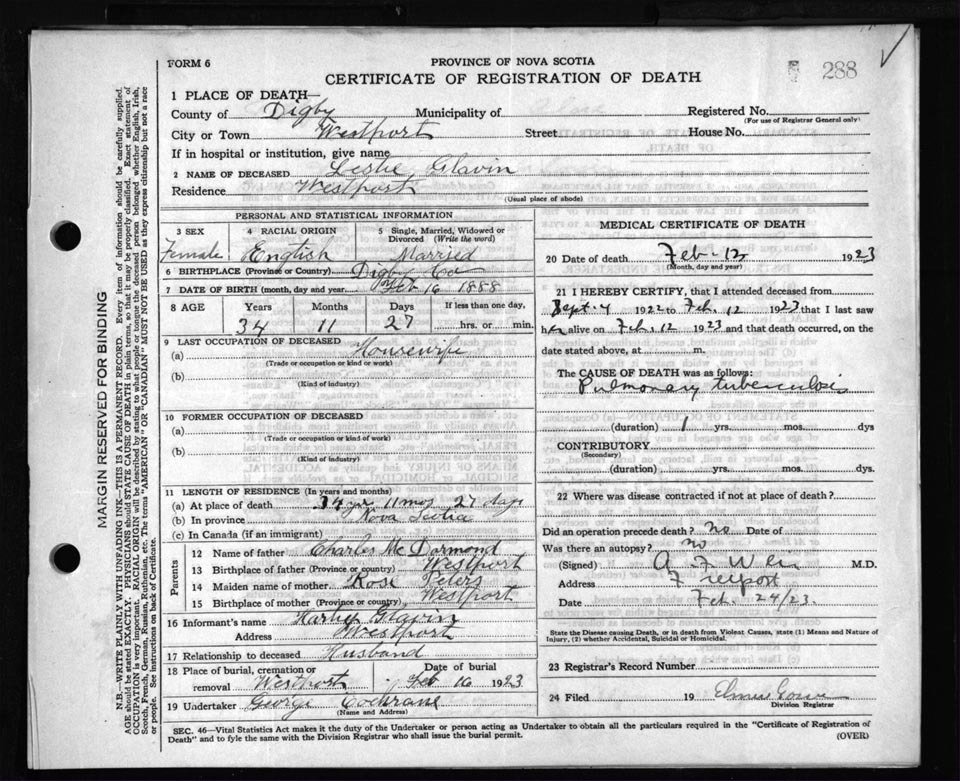 FORM 6
PROVINCE OF NOVA SCOTIA
CERTIFICATE OF REGISTRATION OF DEATH
288
1 PLACE OF DEATH—
County of Digby Municipality of Registered No.
(For use of Registrar General only)
City or Town Westport Street House No.
If in hospital or institution, give name
2 NAME OF DECEASED Leslie Glavin
Residence Westport
(Usual place of abode)
PERSONAL AND STATISTICAL INFORMATION
3 SEX 4 RACIAL ORIGIN 5 Single, Married, Widowed or Divorced (Write the word)
Female English Married
6 BIRTHPLACE (Province or Country) Digby Co
7 DATE OF BIRTH (month, day and year) Feb 16 1888
8 AGE Years Months Days If less than one day,
34 11 27 hrs. or min.
9 LAST OCCUPATION OF DECEASED
(a) Housewife
(Trade or occupation or kind of work)
(b)
(Kind of industry)
10 FORMER OCCUPATION OF DECEASED
(a)
(Trade or occupation or kind of work)
(b)
(Kind of industry)
11 LENGTH OF RESIDENCE (In years and months)
(a) At place of death 34 yrs 11 mos 27 days
(b) In province Nova Scotia
(c) In Canada (if an immigrant)
Parents
12 Name of father Charles McDormond
13 Birthplace of father (Province or country) Westport
14 Maiden name of mother Rose Peters
15 Birthplace of mother (Province or country) Westport
16 Informant's name Harley Glavin
Address Westport
17 Relationship to deceased Husband
18 Place of burial, cremation or removal Westport Date of burial Feb 16 1923
19 Undertaker George Cochrane
(Name and Address)
MEDICAL CERTIFICATE OF DEATH
20 Date of death Feb. 12 1923
(Month, day and year)
21 I HEREBY CERTIFY, that I attended deceased from
Sept. 4 1922 to Feb. 12 1923 that I last saw
her alive on Feb. 12 1923 and that death occurred, on the
date stated above, at m.
The CAUSE OF DEATH was as follows:
Pulmonary tuberculosis
(duration) 1 yrs. mos. dys
CONTRIBUTORY
(Secondary)
(duration) yrs. mos. dys.
22 Where was disease contracted if not at place of death?
Did an operation precede death? no Date of
Was there an autopsy? no
(Signed) A F M.D.
Address Freeport
Date Feb. 24/23.
State the Disease causing Death, or in death from Violent Causes, state (1) Means and Nature of
Injury, (2) whether Accidental, Suicidal or Homicidal.
23 Registrar's Record Number
24 Filed 19
Division Registrar
SEC. 46—Vital Statistics Act makes it the duty of the Undertaker or person acting as Undertaker to obtain all the particulars required in the "Certificate of Registration of
Death" and to fyle the same with the Division Registrar who shall issue the burial permit. (OVER)
MARGIN RESERVED FOR BINDING
N.B.—WRITE PLAINLY WITH UNFADING INK—THIS IS A PERMANENT RECORD. Every item of information should be carefully supplied.
AGE should be stated EXACTLY. PHYSICIANS should STATE CAUSE OF DEATH in plain terms, so that it may be properly classified. Exact statement of
OCCUPATION is very important. RACIAL ORIGIN will be described by stating to what people or tongue the deceased person belonged whether English, Irish,
Scotch, French, German, Russian, Ruthenian, etc. The terms "AMERICAN" or "CANADIAN" MUST NOT BE USED as they express citizenship but not a race
or people. See instructions on back of Certificate.